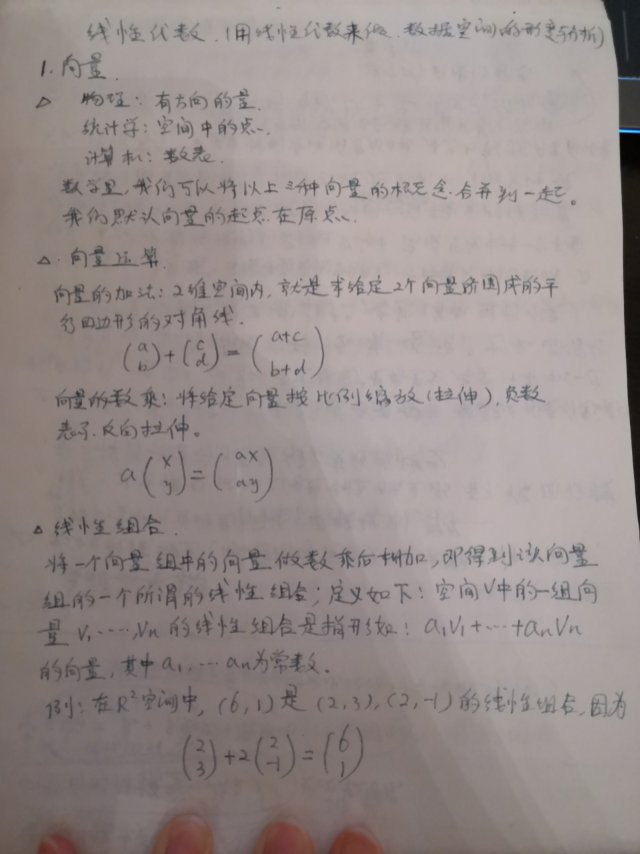 线性代数.(用线性代数来做.数据空间的形变与分析)
1.向量.
△ 物理:有方向的量.
统计学:空间中的点.
计算机:数表.
数学里,我们可以将以上三种向量的概念合并到一起。
我们默认向量的起点在原点.
△.向量运算.
向量的加法:2维空间内,就是求给定2个向量所围成的平
行四边形的对角线.
(a b)+(c d)=(a+c b+d)
向量的数乘:将给定向量按比例缩放(拉伸),负数
表示反向拉伸。
a(x y)=(ax ay)
△ 线性组合.
将一个向量组中的向量做数乘后相加,即得到该向量
组的一个所谓的线性组合;定义如下:空间V中的一组向
量 V₁,…,Vn 的线性组合是指形如: a₁V₁+…+anVn
的向量,其中 a₁,…an为常数.
例:在R²空间中,(6,1)是(2,3),(2,-1)的线性组合,因为
(2 3)+2(2 -1)=(6 1)